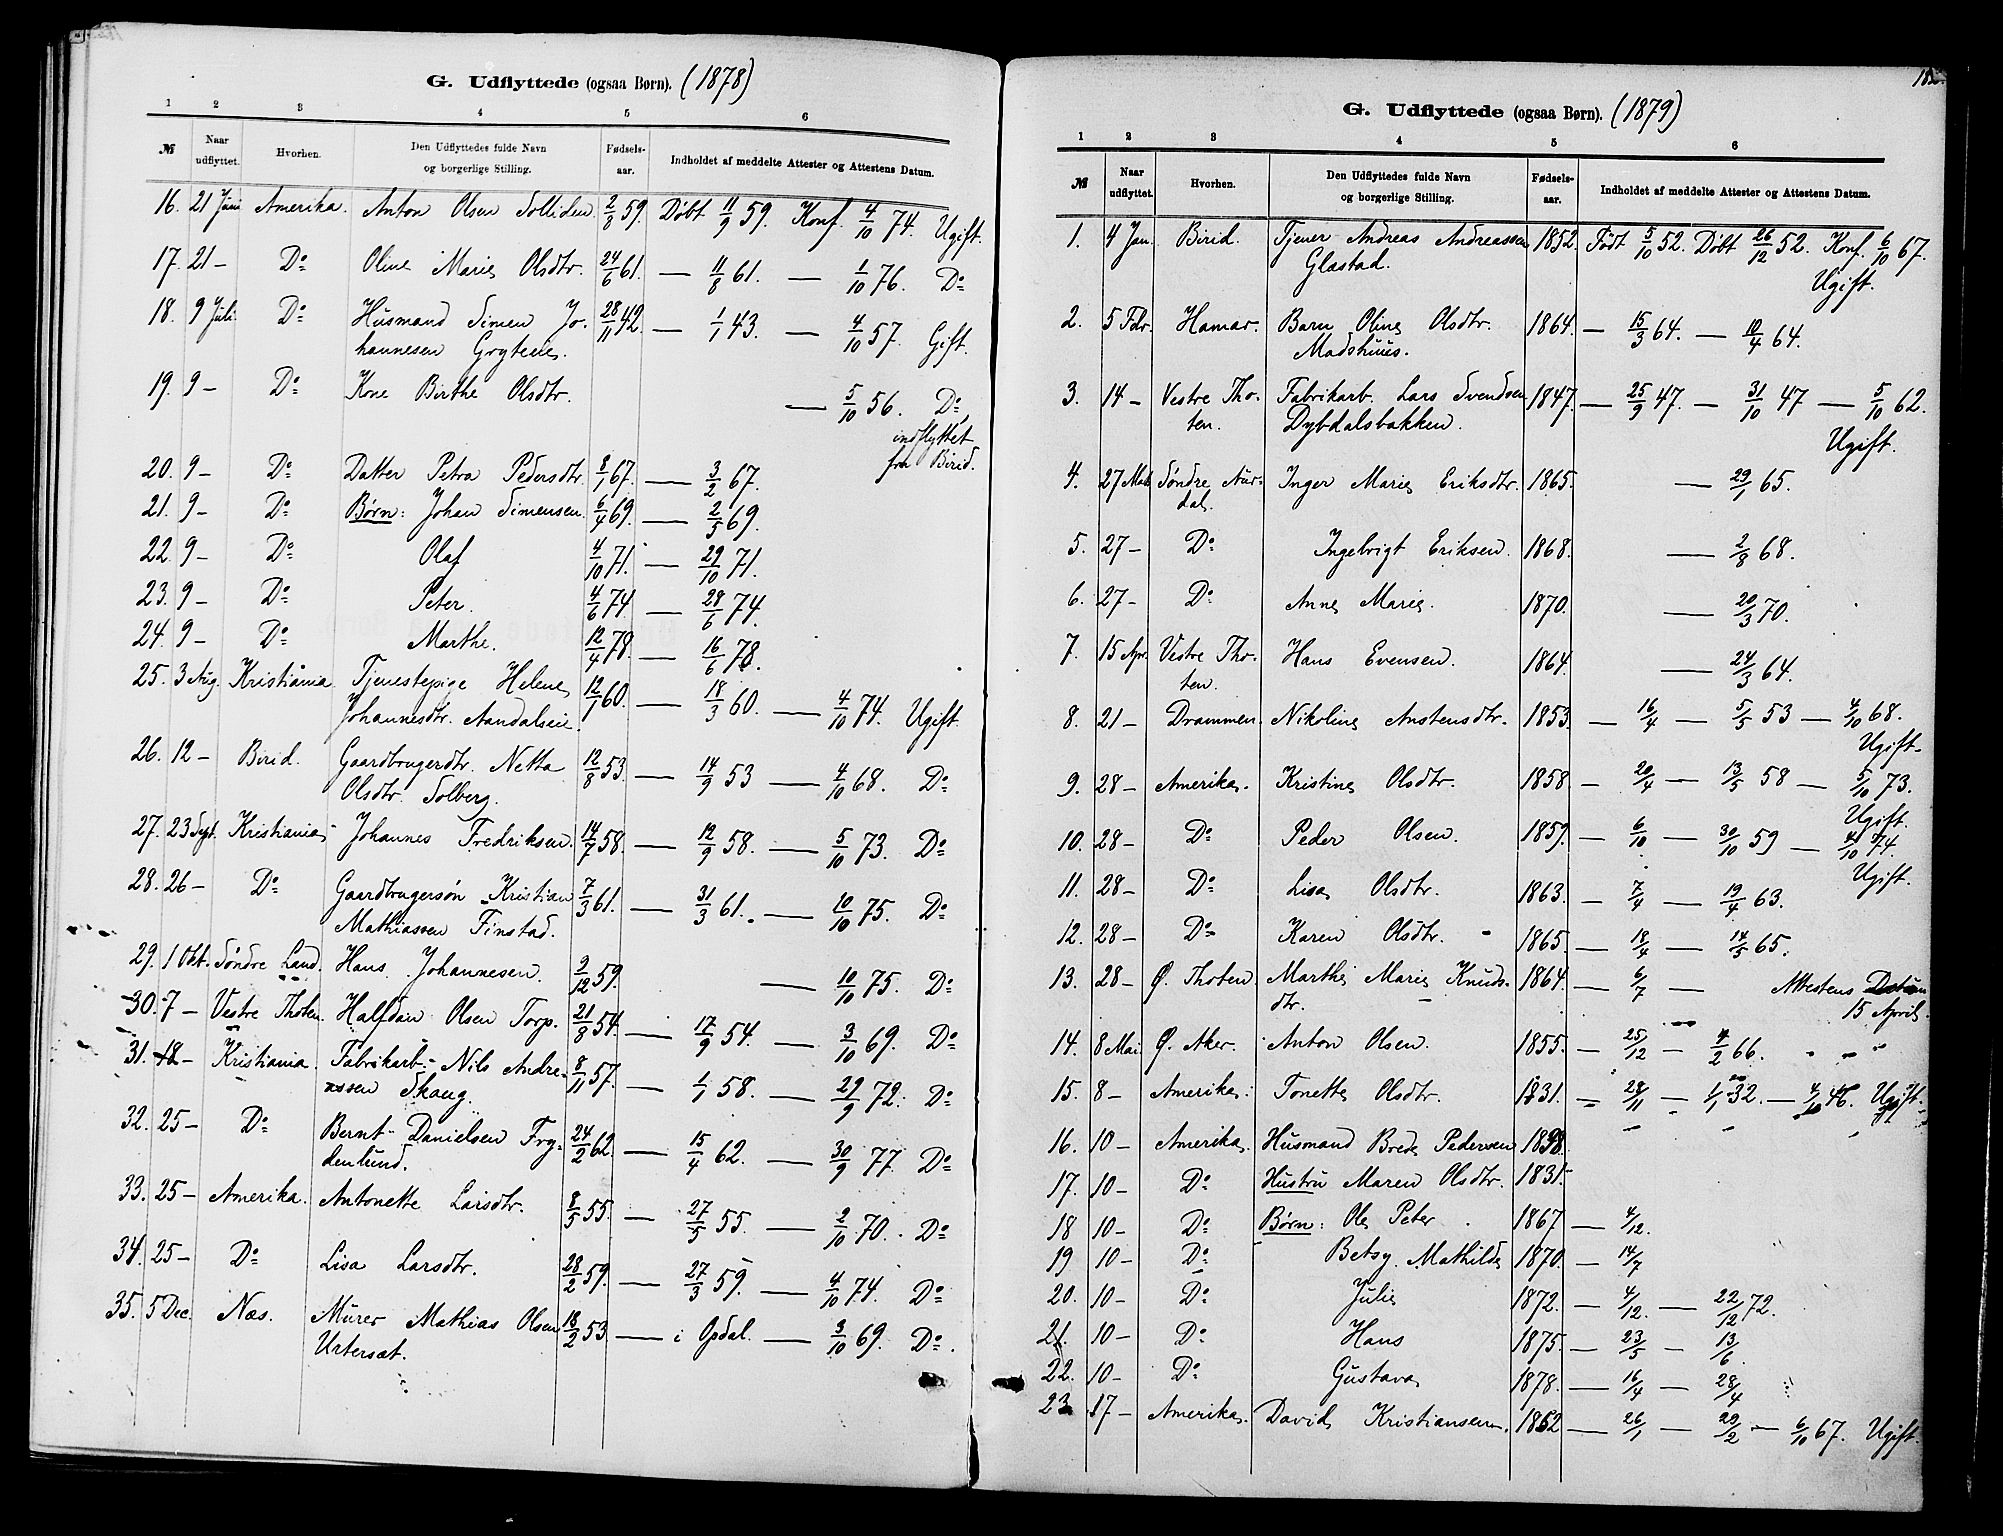 G. Udflyttede (ogsaa Børn). (1878)
1 2 3 4 5 6
№ Naar udflyttet. Hvorhen. Den Udflyttedes fulde Navn og borgerlige Stilling. Fødsels-aar. Indholdet af meddelte Attester og Attestens Datum.
16. 21 Juni Amerika. Anton Olsen Solliden 2/8 59. Døbt 11/9 59. Konf. 4/10 74. Ugift.
17. 21 – Do Oline Marie Olsdtr. 24/6 61. — 11/8 61. — 1/10 76. Do
18. 9 Juli Do Husmand Simen Jo- 28/11 42. — 1/1 43. — 4/10 57. Gift.
hannesen Gryteeie.
19. 9 – Do Kone Birthe Olsdtr. — 5/10 56. Do
indflyttet
fra Birid.
20. 9 – Do Datter Petra Pedersdtr. 8/1 67. — 3/2 67.
21. 9 – Do Børn: Johan Simensen. 6/4 69. — 2/5 69.
22. 9 – Do Olaf 4/10 71. — 29/10 71.
23. 9 – Do Peter. 4/6 74. — 28/6 74.
24. 9 – Do Marthe. 12/4 78. — 16/6 78.
25. 3 Aug. Kristiania Tjenestepige Helene 12/1 60. — 18/3 60. — 4/10 74. Ugift.
Johannesdtr. Aandalseie.
26. 12 – Birid. Gaardbrugerdtr. Netta 12/8 53. — 14/9 53 — 4/10 68. Do
Olsdtr. Solberg.
27. 23 Sept. Kristiania Johannes Fredriksen. 14/7 58. — 12/9 58. — 5/10 73. Do
28. 26 – Do Gaardbrugersøn Kristian 7/3 61. — 31/3 61. — 10/10 75. Do
Mathiassen Finstad.
29. 1 Okt. Søndre Land. Hans Johannesen. 9/12 59. — 10/10 75. Do
30. 7 – Vestre Thoten. Halfdan Olsen Torp. 21/8 54. — 17/9 54. — 3/10 69. Do
31. 18 – Kristiania. Fabrikarb. Nils Andre- 8/11 57. — 1/1 58. — 29/9 72. Do
assen Skoug.
32. 25 – Do Bernt Danielsen Fry- 24/2 62. — 15/4 62. — 30/9 77. Do
denlund.
33. 25 – Amerika. Antonette Larsdtr. 8/5 55. — 27/5 55. — 2/10 70. Do
34. 25 – Do Lisa Larsdtr. 28/2 59. — 27/3 59. — 4/10 74. Do
35. 5 Dec. Næs. Murer Mathias Olsen 18/2 53 — i Opdal. — 3/10 69. Do.
Urtersæt.
G. Udflyttede (ogsaa Børn). (1879)
1 2 3 4 5 6
№ Naar udflyttet. Hvorhen. Den Udflyttedes fulde Navn og borgerlige Stilling. Fødsels-aar. Indholdet af meddelte Attester og Attestens Datum.
1. 4 Jan. Birid. Tjener Andreas Andreassen 1852. Født 5/10 52. Døbt 26/12 52. Konf. 6/10 67.
Glæstad. Ugift.
2. 5 Febr. Hamar. Barn Oline Olsdtr. 1864. — 15/3 64. — 10/4 64.
Madshuus.
3. 14 – Vestre Tho- Fabrikarb. Lars Svendsen 1847. — 25/9 47. — 31/10 47 — 5/10 62.
ten. Dybdalsbakken. Ugift.
4. 27 Søndre Aur- Inger Marie Eriksdtr. 1865. — 29/1 65.
dal.
5. 27 – Do Ingebrigt Eriksen. 1868. — 2/8 68.
6. 27 – Do Anne Marie. 1870. — 20/3 70.
7. 15 Apr. Vestre Tho- Hans Evensen. 1864. — 24/3 64.
ten.
8. 21 – Drammen. Nikoline Anstensdtr. 1853. — 16/4 — 5/5 53 — 4/10 68.
Ugift.
9. 28 – Amerika. Kristine Olsdtr. 1858. — 20/4 — 13/5 58 — 5/10 73.
Ugift.
10. 28 – Do Peder Olsen. 1859. — 6/10 — 30/10 59 — 4/10 74.
Ugift.
11. 28 – Do Lisa Olsdtr. 1863. — 7/4 — 19/4 63.
12. 28 – Do Karen Olsdtr. 1865. — 18/4 — 14/5 65.
13. 28 – Ø. Thoten. Marthe Marie Knuds- 1864. — 6/7 — Attestens Datum
dtr. 15 April.
14. 8 Mai Ø. Aker. Anton Olsen. 1855. — 25/12 — 4/2 66.
15. 8 – Amerika. Tonette Olsdtr. 1831. — 28/11 — 1/1 32. — 4/10 46. Ugift.
16. 10 – Amerika. Husmand Brede Pedersen
17. 10 – Do Hustru Maren Olsdtr. 1831.
18 10 – Do Børn: Ole Peter 1867 — 4/12.
19 10 – Do Betsy Mathilde 1870. — 14/7
20. 10 – Do Julie 1872. — 4/12. — 22/12 72.
21. 10 – Do Hans 1875. — 23/5 — 13/6.
22. 10 – Do Gustava 1878. — 16/4 — 28/4
23. 17 – Amerika. David Kristiansen. 1852 — 26/1 — 29/2 — 6/10 67. Ugift.